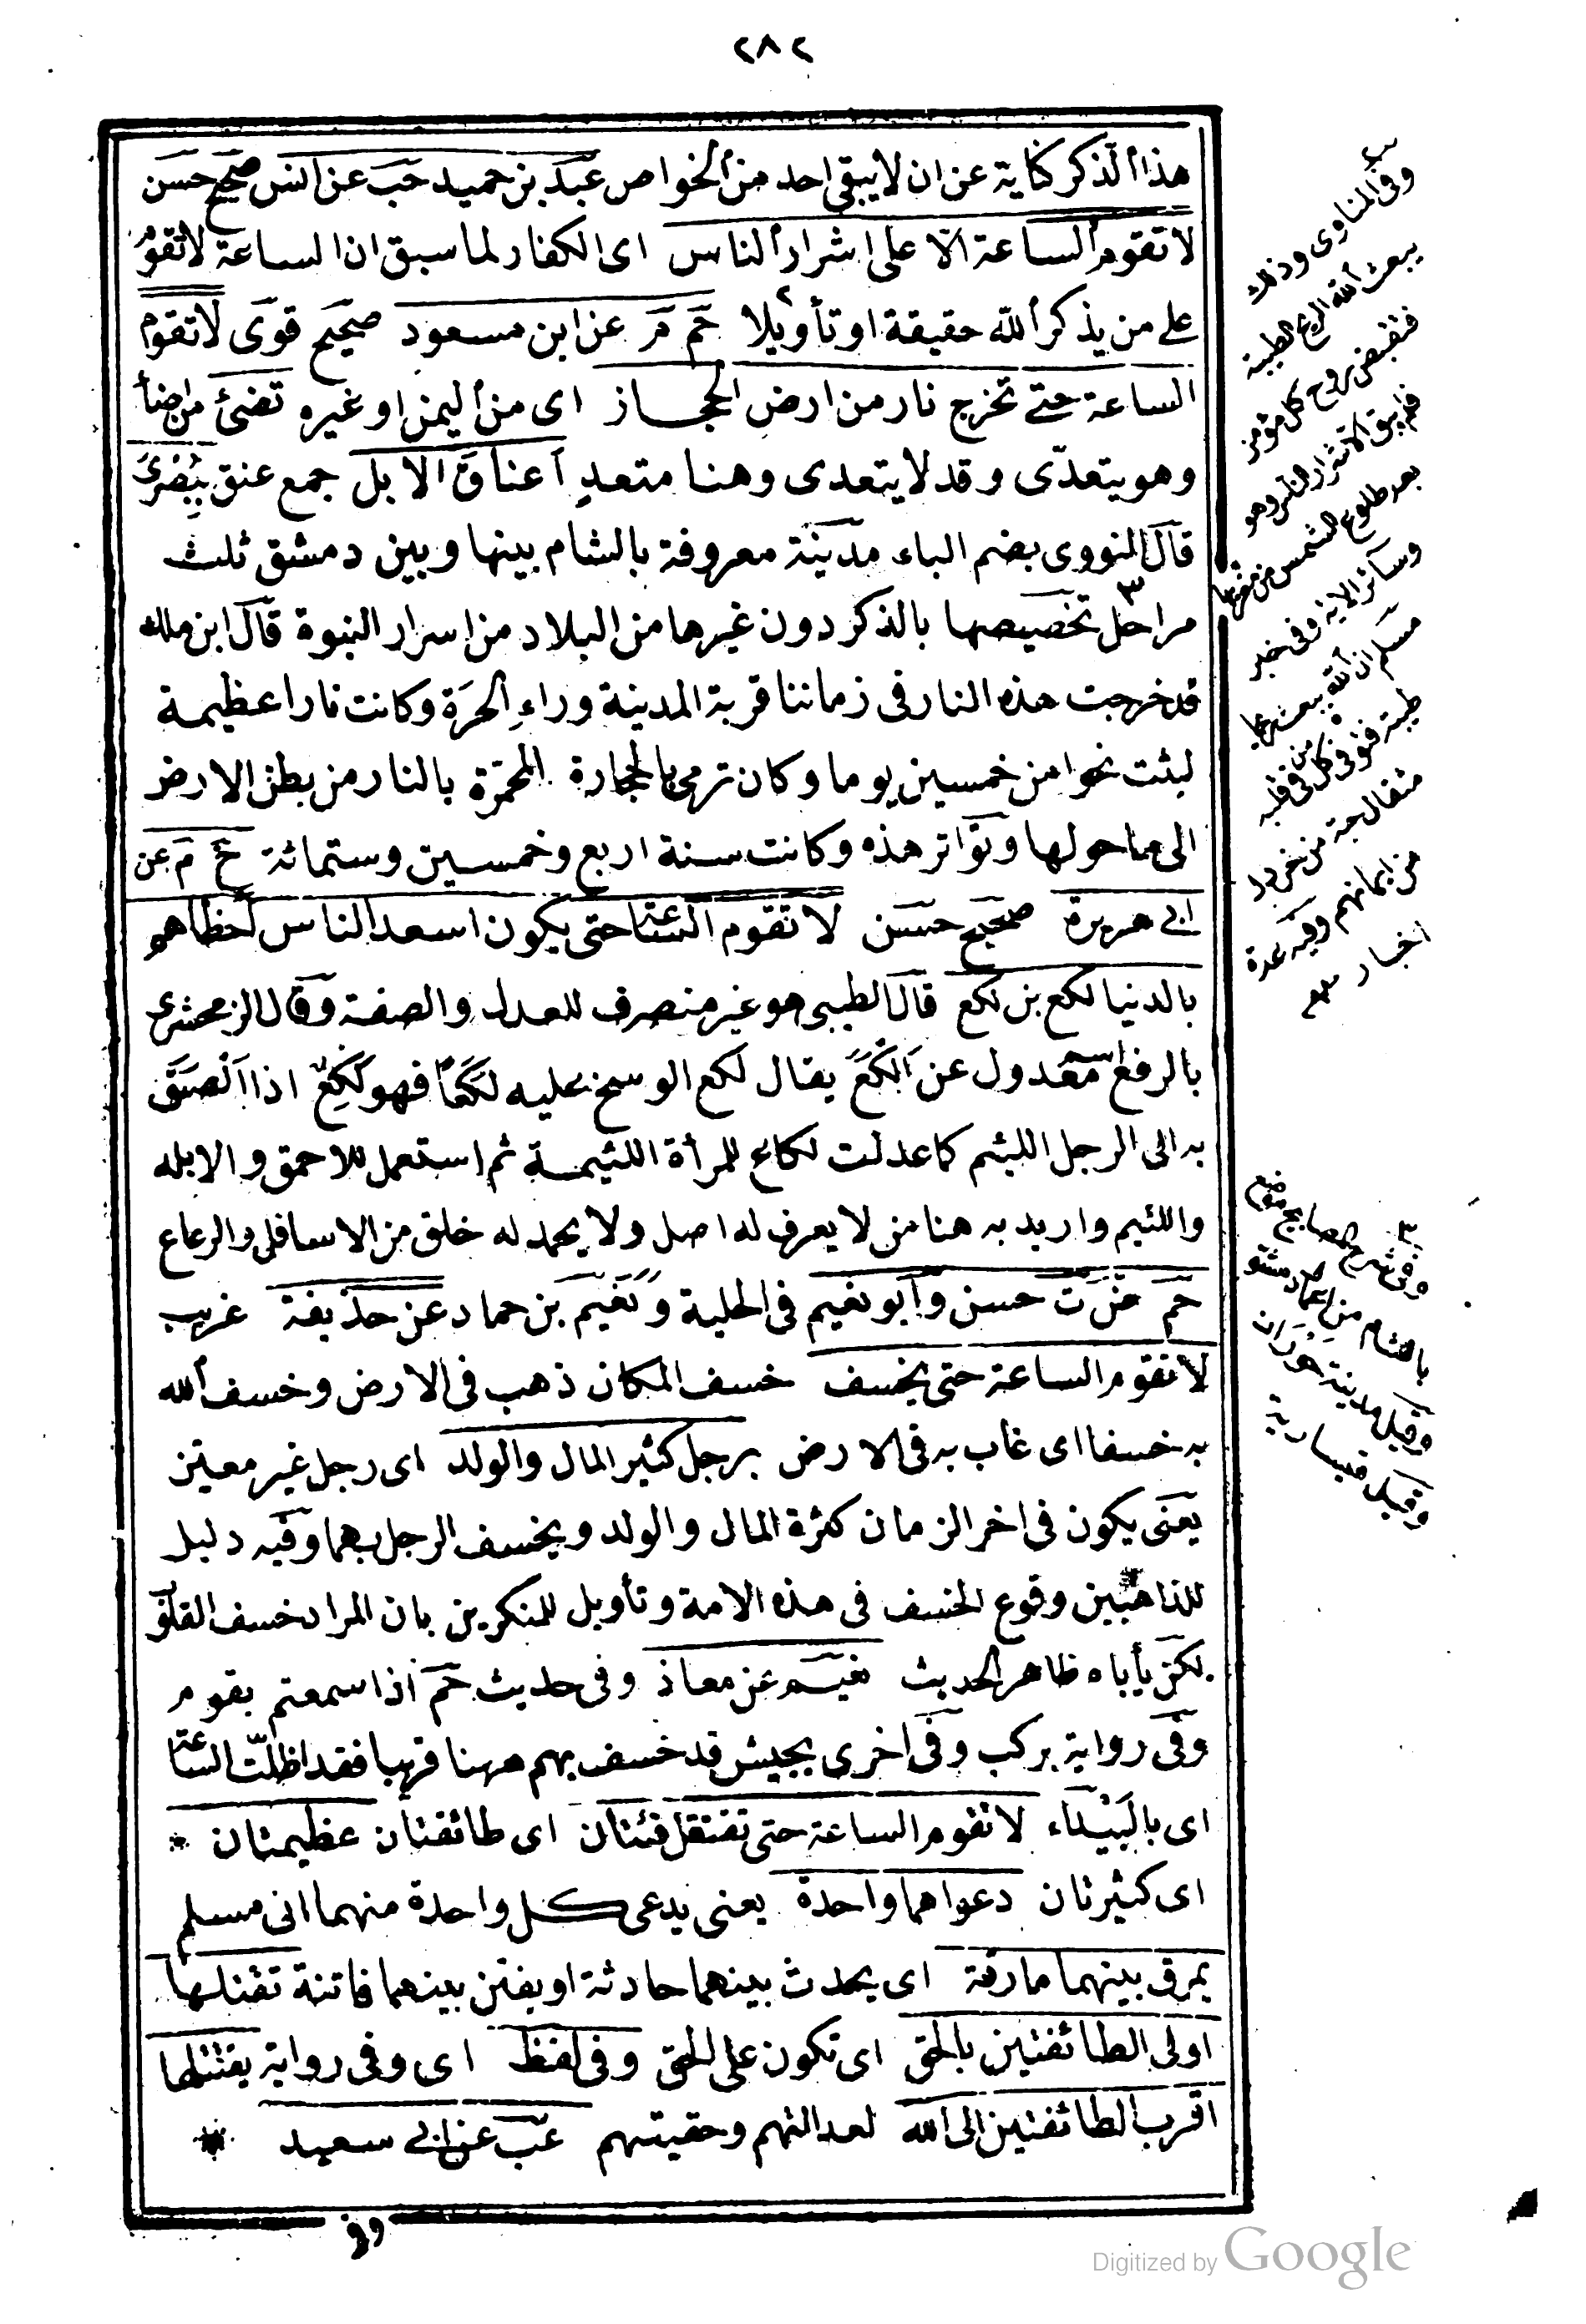 ٢٨٢
هذا الذكر كناية عن ان لا يبقى احد من الخواص عبد بن حميد حب عن انس صحيح حسن
لا تقوم الساعة الا على اشرار الناس اى الكفار لما سبق ان الساعة لا تقوم
على من يذكر الله حقيقة او تأويلا ٢ حم م عن ابن مسعود صحيح قوى لا تقوم
الساعة حتى تخرج نار من ارض الحجاز اى من اليمن او غيره تضئ من اضأ
وهو يتعدى وقد لا يتعدى وهنا متعد اعناق الابل جمع عنق ببصرى
قال النووى بضم الباء مدينة معروفة بالشام بينها وبين دمشق ثلث
مراحل ٣ تخصيصها بالذكر دون غيرها من البلاد من اسرار النبوة قال ابن ملك
قد خرجت هذه النار فى زماننا قربة المدينة وراء الحرة وكانت نارا عظيمة
لبثت نحوا من خمسين يوما وكان ترمى بالحجارة المحمرة بالنار من بطن الارض
الى ما حولها وتواتر هذه وكانت سنة اربع وخمسين وستمائة خ م عن
ابى هريرة صحيح حسن لا تقوم الساعة حتى يكون اسعد الناس احظاهم
بالدنيا لكع بن لكع قال الطيبى هو غير منصرف للعدل والصفة وقال الزمحشرى
بالرفع اسم معدول عن الكع يقال لكع الوسخ عليه لكعا فهو لكع اذا الصق
به الى الرجل اللئيم كما عدلت لكاع للمرأة اللئيمة ثم استعمل للاحمق والابله
واللئيم واريد به هنا من لا يعرف له اصل ولا يحمد له خلق من الاسافل والرعاع
حم ض ت حسن وابو نعيم فى الحلية ونعيم بن حماد عن حذيفة غريب
لا تقوم الساعة حتى يخسف خسف المكان ذهب فى الارض وخسف الله
به خسفا اى غاب به فى الارض برجل كثير المال والولد اى رجل غير معين
يعنى يكون فى اخر الزمان كثرة المال والولد ويخسف الرجل بهما وفيه دليل
للذاهبين وقوع الخسف فى هذه الامة وتأويل للمنكرين بان المراد خسف القلوب
لكن يأباه ظاهر الحديث نعيم عن معاذ وفى حديث حم اذا سمعتم بقوم
وفى رواية بركب وفى اخرى بجيش قد خسف بهم ههنا قريبا فقد اظلت الساعة
اى بالبيداء لا تقوم الساعة حتى تقتتل فئتان اى طائفتان عظيمتان *
اى كثيرتان دعواهما واحدة يعنى يدعى كل واحدة منهما انى مسلم
يمرق بينهما مارقة اى يحدث بينهما حادثة او يفتن بينهما فاتنة تقتلها
اولى الطائفتين بالحق اى تكون على الحق وفى لفظ اى وفى رواية يقتلها
اقرب الطائفتين الى الله لعدالتهم وحقيتهم عب عن ابى سعيد *
وفى
وفى المناوى وذلك
يبعث الله الريح الطيبة
فتقبض روح كل مؤمن
فلم يبق الا شرار الناس وهو
بعد طلوع الشمس من مغربها
وسائر الاية وفى خبر
مسلم ان الله يبعث ريحا
طيبة فتوفى كل من فى قلبه
مثقال حبة من خردل
من ايمانهم وفيه عدة
اخبار
٣
وفى شرح المصابيح موضع
بالشام من اعمال دمشق
وقيل مدينة حوران
وقيل قيسارية
Digitized by Google